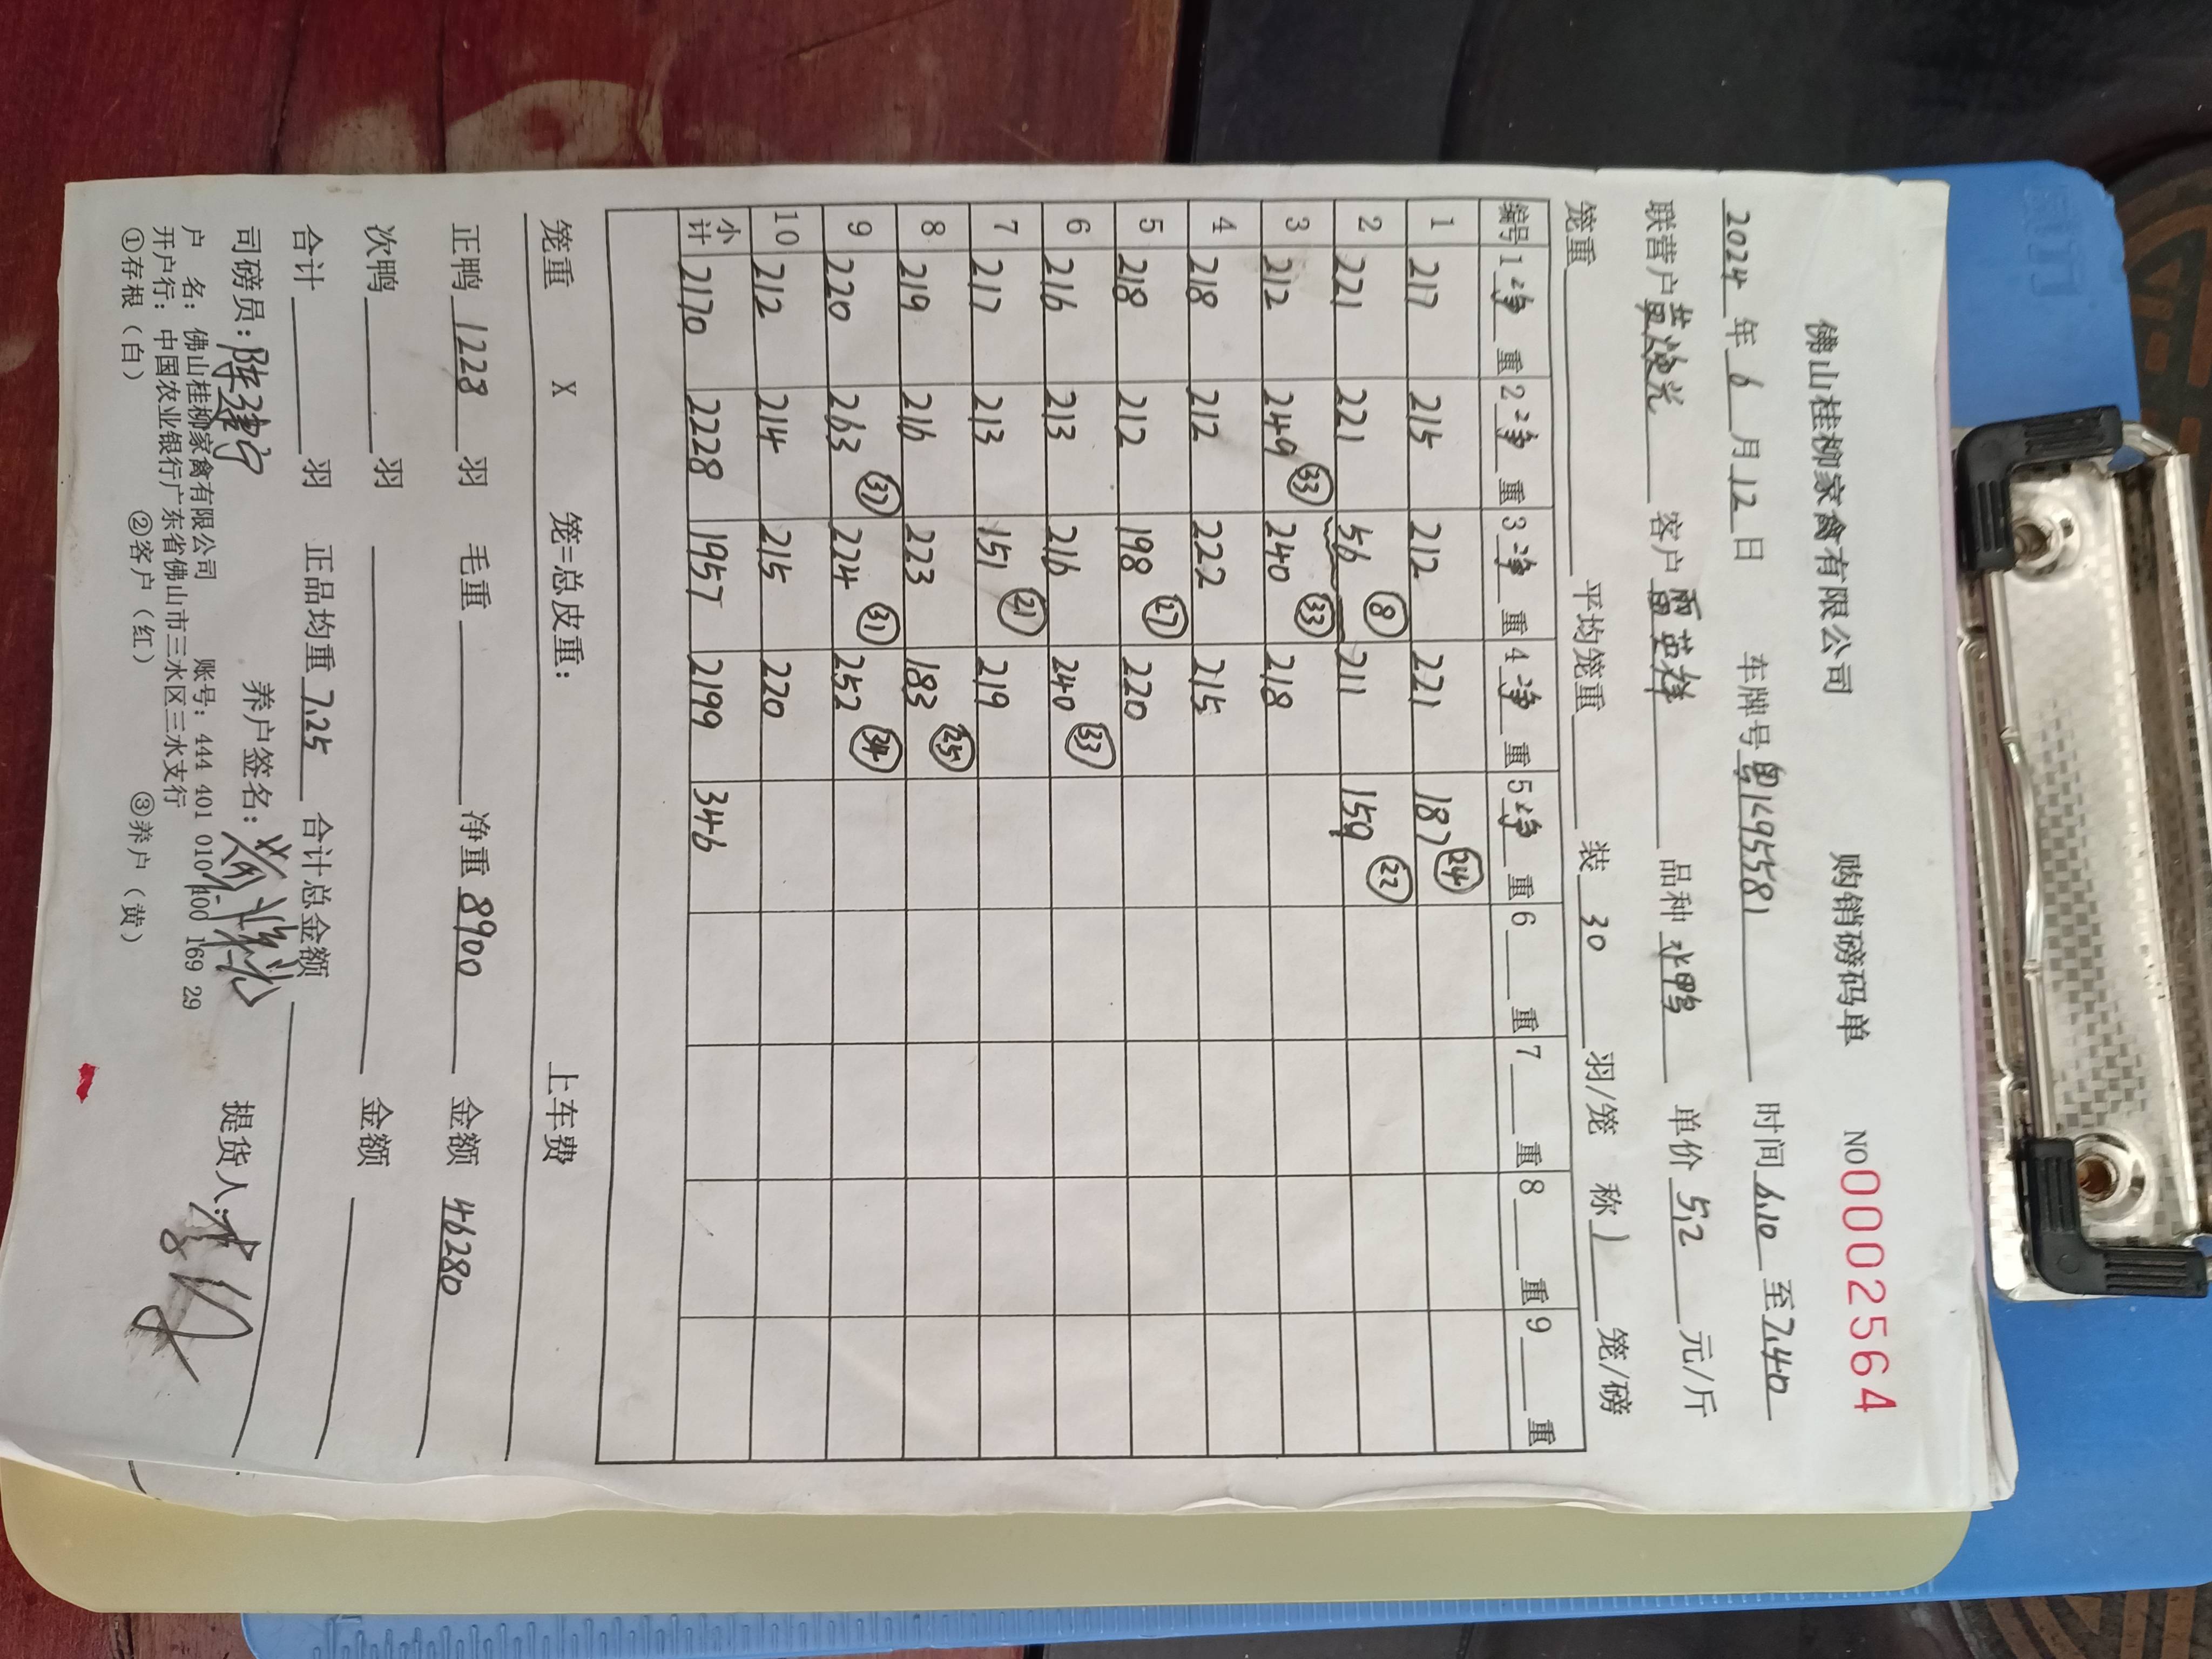 佛山桂柳家禽有限公司 购销磅码单 NO 0002564
2024年6月12日 车牌号粤1495581 时间6.10至7.40
联营户黄焕光 客户雷英祥 品种水鸭 单价5.2元/斤
笼重 平均笼重 装30羽/笼 称1笼/磅
编号 1净重 2净重 3净重 4净重 5净重 6重 7重 8重 9重
1 217 215 212 221 187 24
2 221 221 56 8 211 159 22
3 212 249 33 240 33 218
4 218 212 222 215
5 218 212 198 27 220
6 216 213 216 240 33
7 217 213 151 21 219
8 219 216 223 183 25
9 220 263 37 224 31 252 34
10 212 214 215 220
小计 2170 2228 1957 2199 346
笼重 X 笼=总皮重： 上车费
正鸭1228羽 毛重 净重8900 金额46280
次鸭 羽 金额
合计 羽 正品均重7.25 合计总金额
司磅员： 养户签名： 提货人：
户 名：佛山桂柳家禽有限公司 账号：444 401 010 400 169 29
开户行：中国农业银行广东省佛山市三水区三水支行
①存根（白） ②客户（红） ③养户（黄）